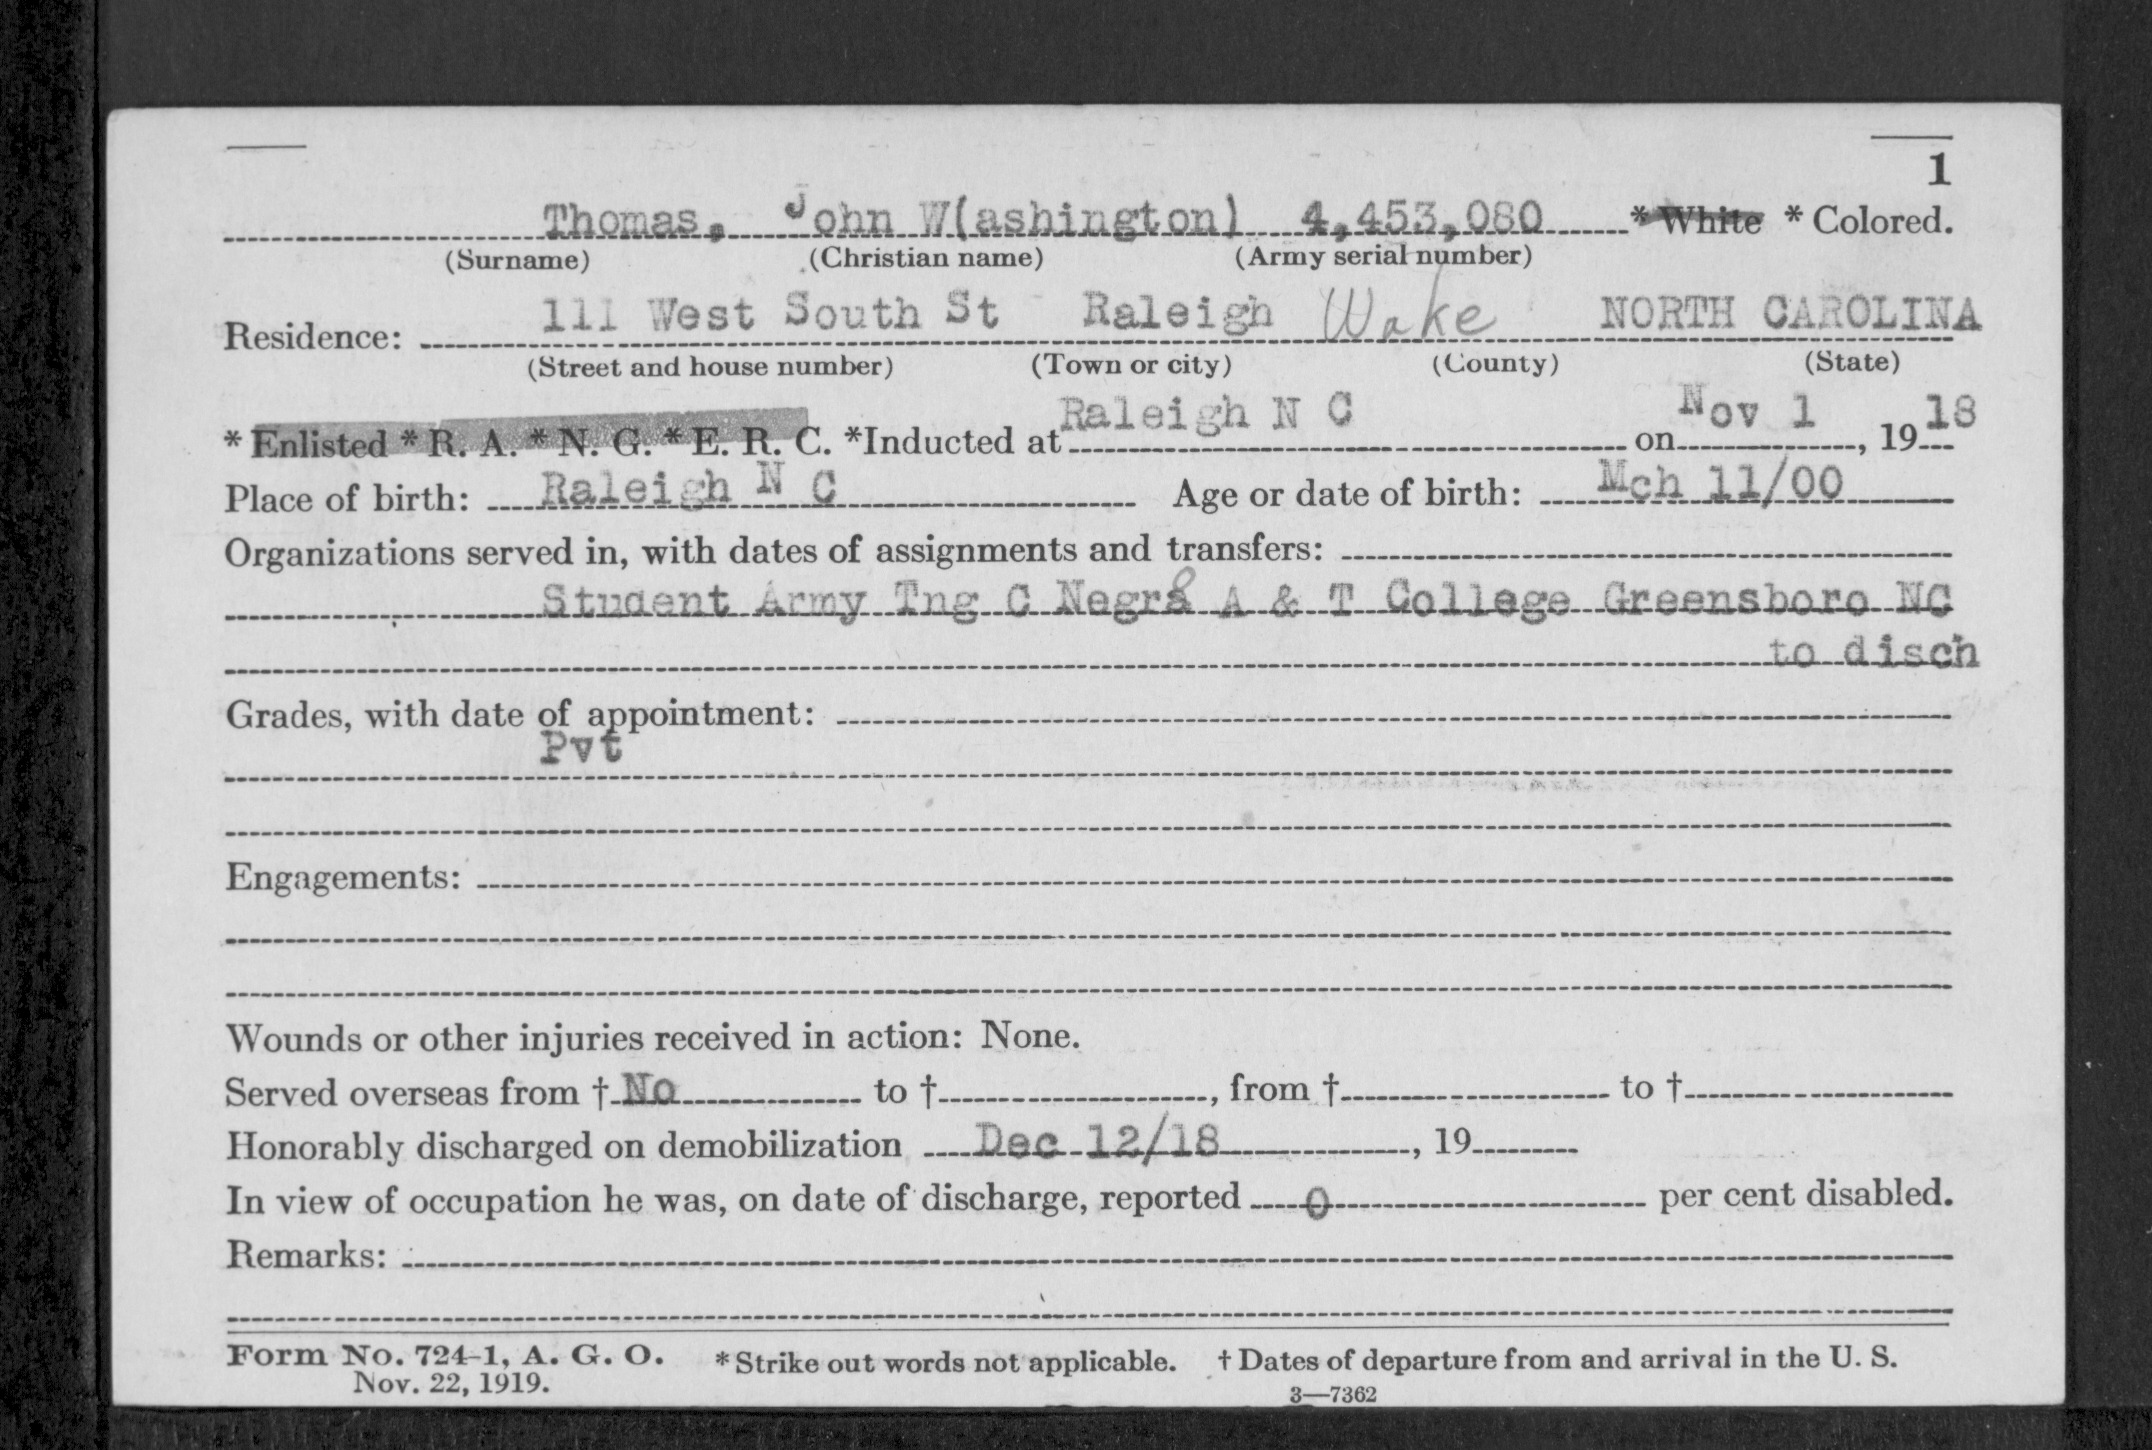 1
Thomas, John W(ashington) 4,453,080 * White * Colored.
(Surname) (Christian name) (Army serial number)
Residence: 111 West South St Raleigh Wake NORTH CAROLINA
(Street and house number) (Town or city) (County) (State)
* Enlisted * R. A. * N. G. * E. R. C. *Inducted at Raleigh N C on Nov 1, 1918
Place of birth: Raleigh N C Age or date of birth: Mch 11/00
Organizations served in, with dates of assignments and transfers:
Student Army Tng C Negro A & T College Greensboro NC
to disch
Grades, with date of appointment:
Pvt
Engagements:
Wounds or other injuries received in action: None.
Served overseas from † No to †, from † to †
Honorably discharged on demobilization Dec 12/18, 19
In view of occupation he was, on date of discharge, reported 0 per cent disabled.
Remarks:
Form No. 724-1, A. G. O. * Strike out words not applicable. † Dates of departure from and arrival in the U. S.
Nov. 22, 1919.
3—7362